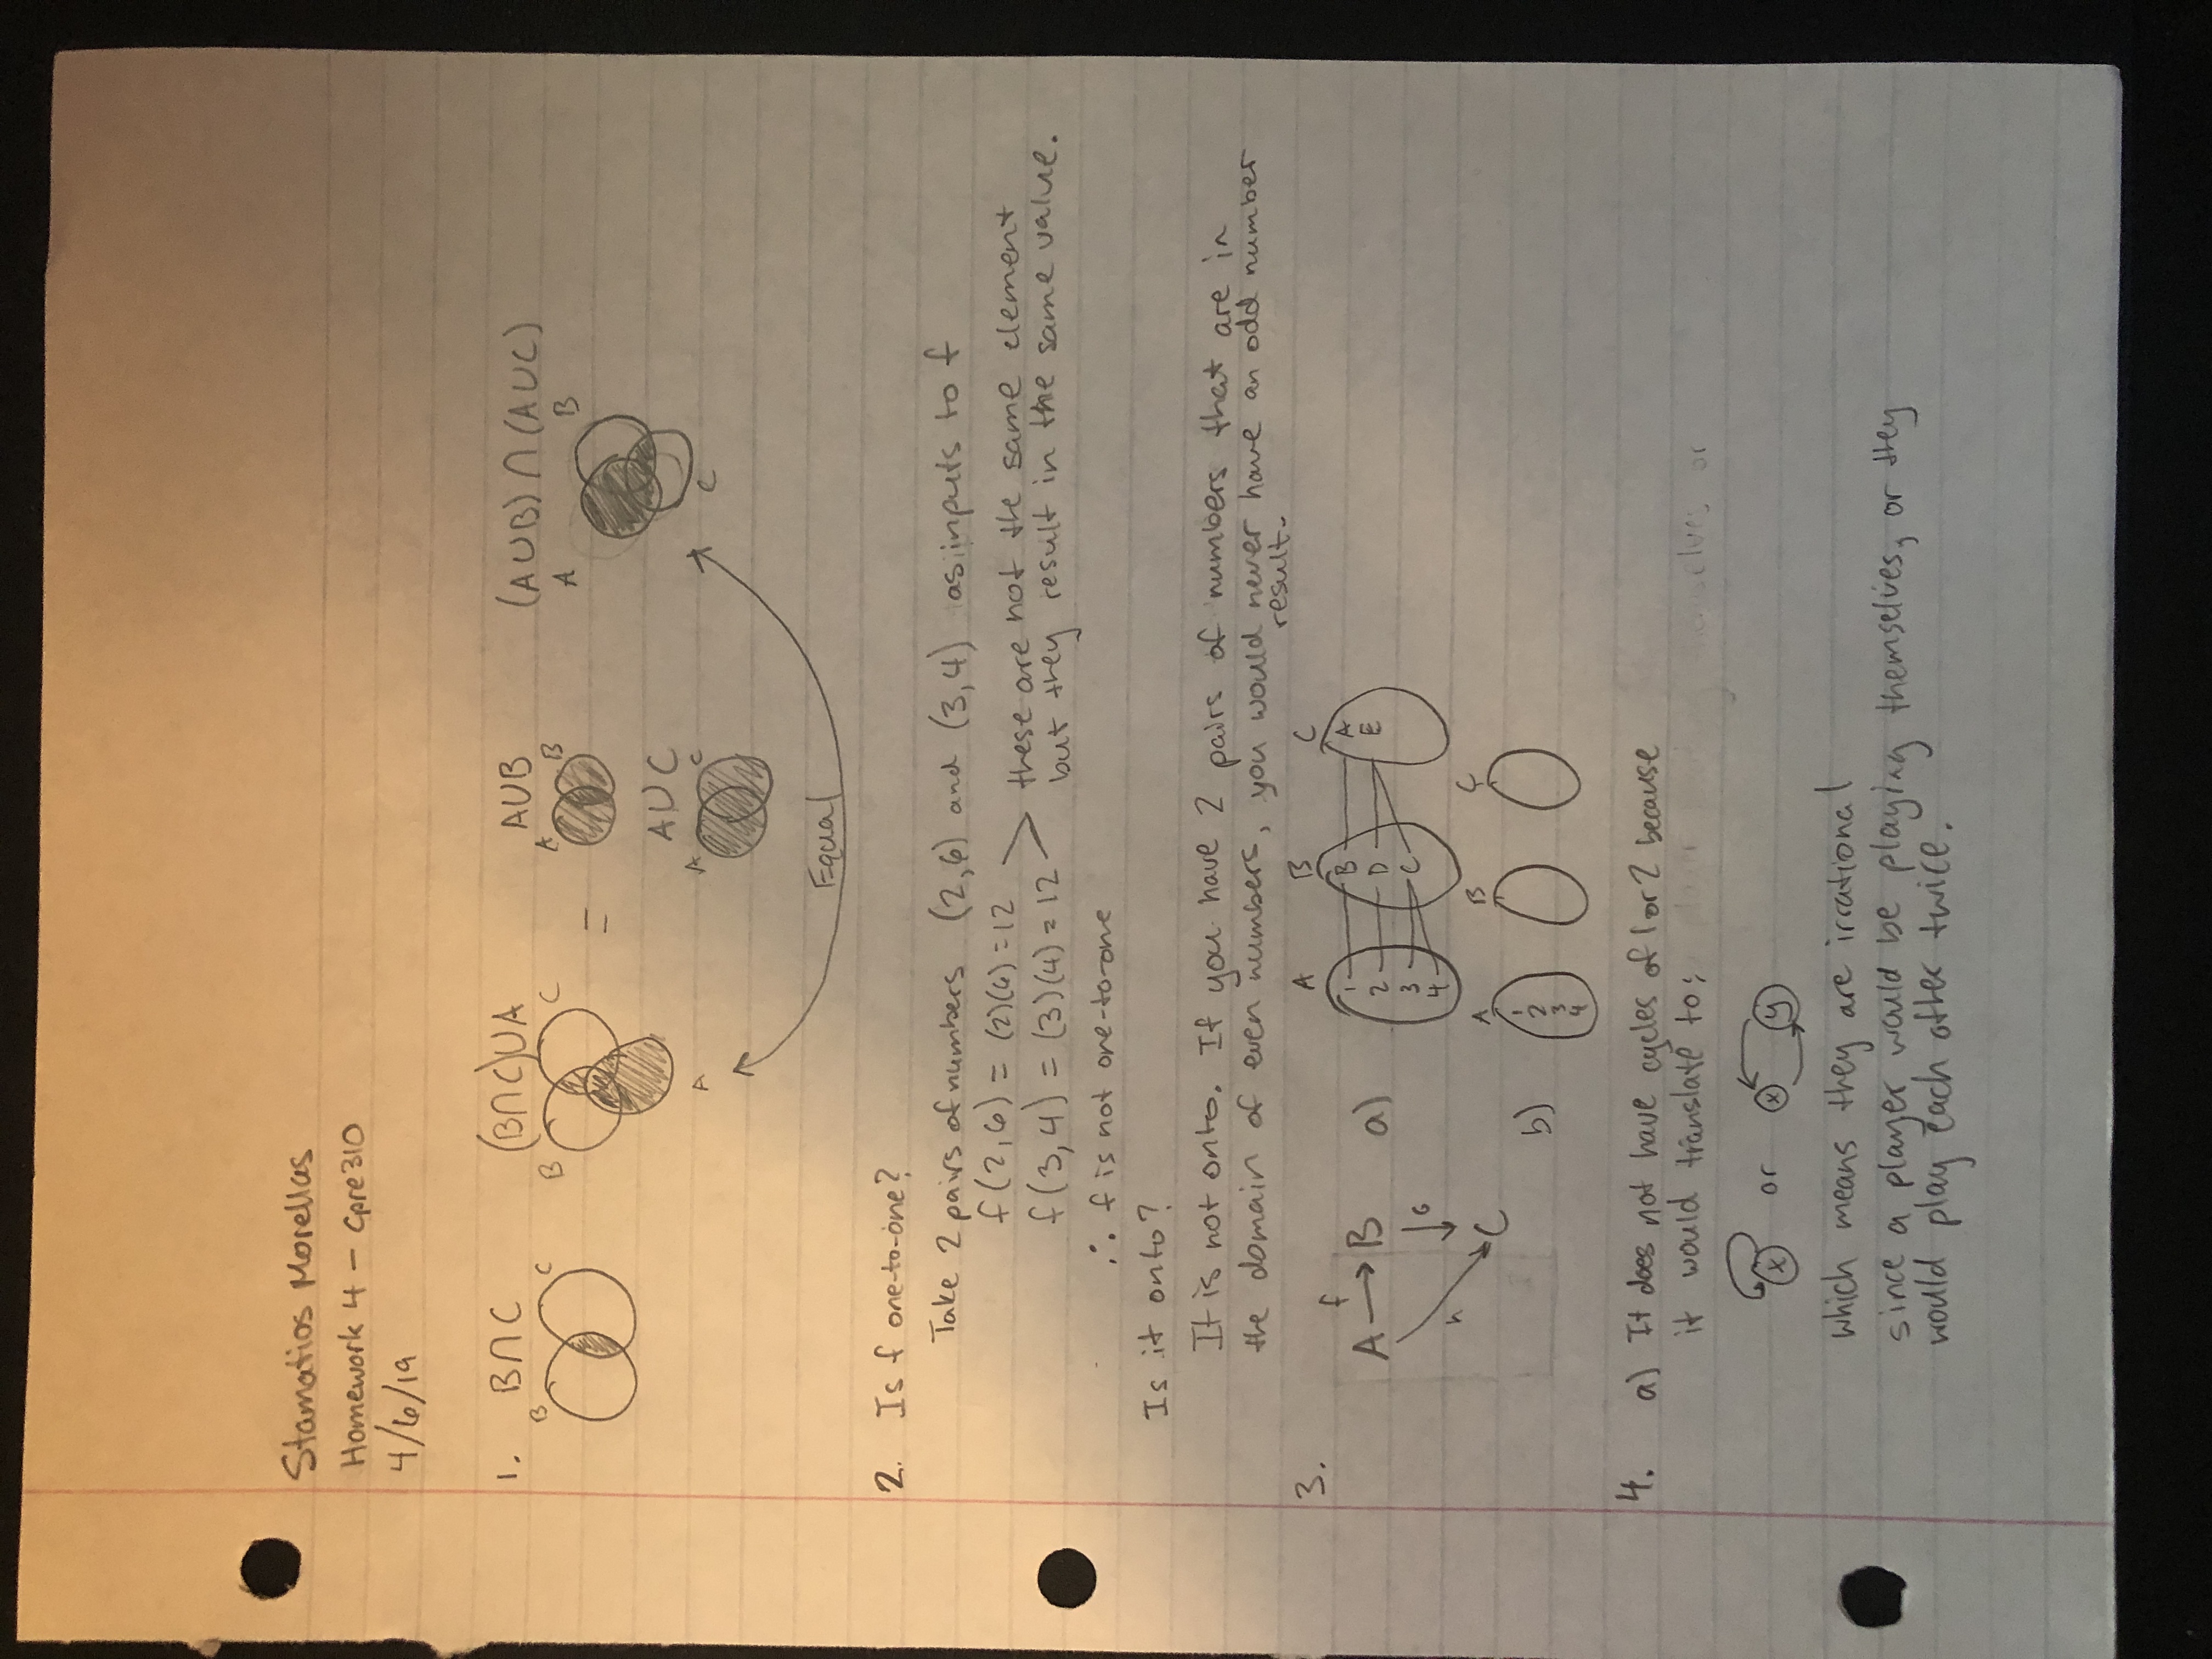 Stamatios Morellas
Homework 4 - Cpre310
4/6/19
1. B∩C (B∩C)∪A A∪B (A∪B)∩(A∪C)
B C B C = A B A B
A∪C
A A C C
Equal
2. Is f one-to-one?
Take 2 pairs of numbers (2,6) and (3,4) as inputs to f
f(2,6) = (2)(6) = 12
these are not the same element
f(3,4) = (3)(4) = 12
but they result in the same value.
∴ f is not one-to-one
Is it onto?
It is not onto. If you have 2 pairs of numbers that are in
the domain of even numbers, you would never have an odd number
result.
3. A B C
f
A → B a) 1 B A
2 D E
3 C
4
G
h
C
A B C
b) 1
2
3
4
4. a) It does not have cycles of 1 or 2 because
it would translate to:
x or x y
which means they are irrational
since a player would be playing themselves, or they
would play each other twice.